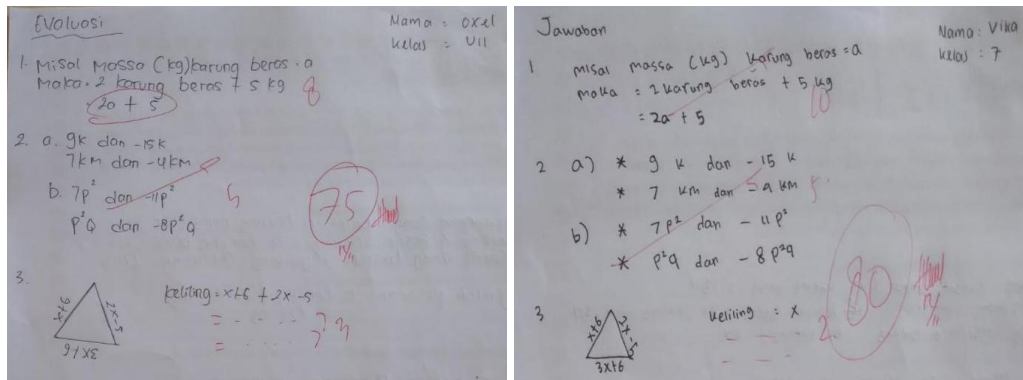 Evaluasi
Nama : oxel
kelas : VII
1. Misal Massa (kg) karung beras = a
Maka = 2 karung beras + 5 kg
2a + 5
8
2. a. 9k dan -15k
7km dan -4km
b. 7p² dan -11p²
p²Q dan -8p²Q
5
75
3.
x+6
2x-5
3x+6
keliling = x+6 + 2x -5
= . . . .
= . . . .
? 3
Jawaban
Nama : Vika
kelas : 7
1 misal massa (kg) karung beras = a
maka = 2 karung beras + 5 kg
= 2a + 5
10
2 a) * 9 k dan - 15 k
* 7 km dan - 4 km
b) * 7p² dan - 11p²
* p²q dan - 8p²q
80
3
x+6
2x-5
3x+6
keliling : x
2